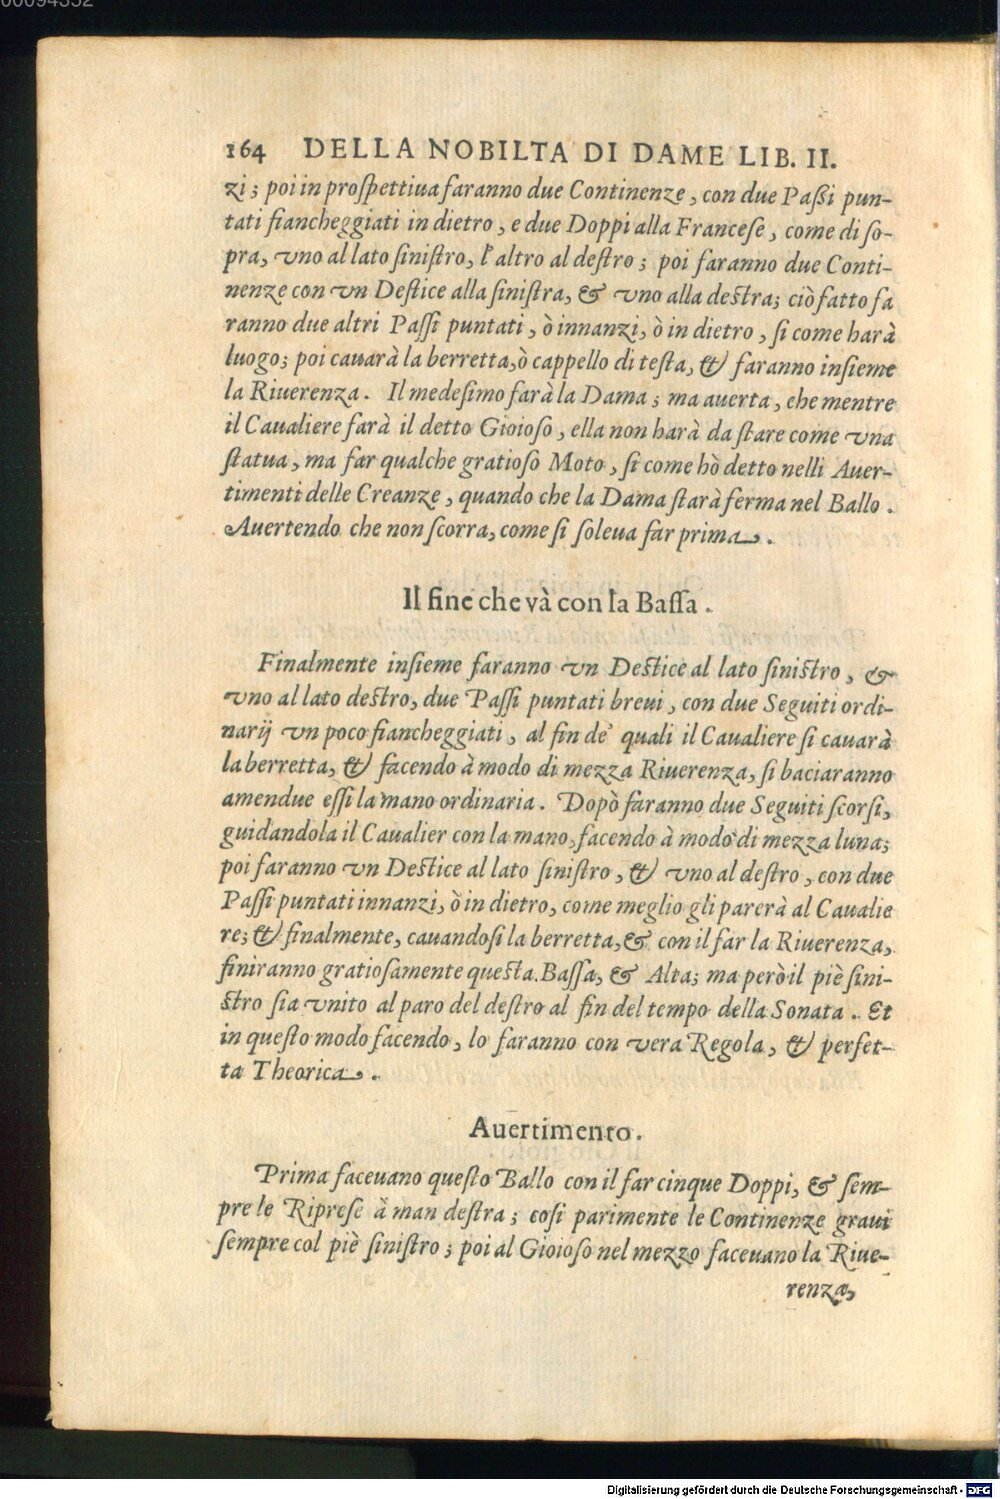 00094352
164 DELLA NOBILTA DI DAME LIB. II.
zi; poi in proſpettiua faranno due Continenze, con due Paßi pun-
tati fiancheggiati in dietro, e due Doppi alla Franceſe, come di ſo-
pra, vno al lato ſiniſtro, l'altro al deſtro; poi faranno due Conti-
nenze con vn Deſtice alla ſiniſtra, & vno alla deſtra; ciò fatto fa
ranno due altri Paſſi puntati, ò innanzi, ò in dietro, ſi come harà
luogo; poi cauarà la berretta, ò cappello di teſta, & faranno inſieme
la Riuerenza. Il medeſimo farà la Dama; ma auerta, che mentre
il Caualiere farà il detto Gioioſo, ella non harà da ſtare come vna
ſtatua, ma far qualche gratioſo Moto, ſi come hò detto nelli Auer-
timenti delle Creanze, quando che la Dama ſtarà ferma nel Ballo.
Auertendo che non ſcorra, come ſi ſoleua far prima.
Il fine che và con la Baſſa.
Finalmente inſieme faranno vn Deſtice al lato ſiniſtro, &
vno al lato deſtro, due Paſſi puntati breui, con due Seguiti ordi-
narij vn poco fiancheggiati, al fin de' quali il Caualiere ſi cauarà
la berretta, & facendo à modo di mezza Riuerenza, ſi baciaranno
amendue eſſi la mano ordinaria. Dopò faranno due Seguiti ſcorſi,
guidandola il Caualier con la mano, facendo à modo di mezza luna;
poi faranno vn Deſtice al lato ſiniſtro, & vno al deſtro, con due
Paſſi puntati innanzi, ò in dietro, come meglio gli parerà al Caualie
re; & finalmente, cauandoſi la berretta, & con il far la Riuerenza,
finiranno gratioſamente queſta Baſſa, & Alta; ma però il piè ſini-
ſtro ſia vnito al paro del deſtro al fin del tempo della Sonata. Et
in queſto modo facendo, lo faranno con vera Regola, & perfet-
ta Theorica.
Auertimento.
Prima faceuano queſto Ballo con il far cinque Doppi, & ſem-
pre le Ripreſe à man deſtra; coſi parimente le Continenze graui
ſempre col piè ſiniſtro; poi al Gioioſo nel mezzo faceuano la Riue-
renza,
Digitalisierung gefördert durch die Deutsche Forschungsgemeinschaft - DFG